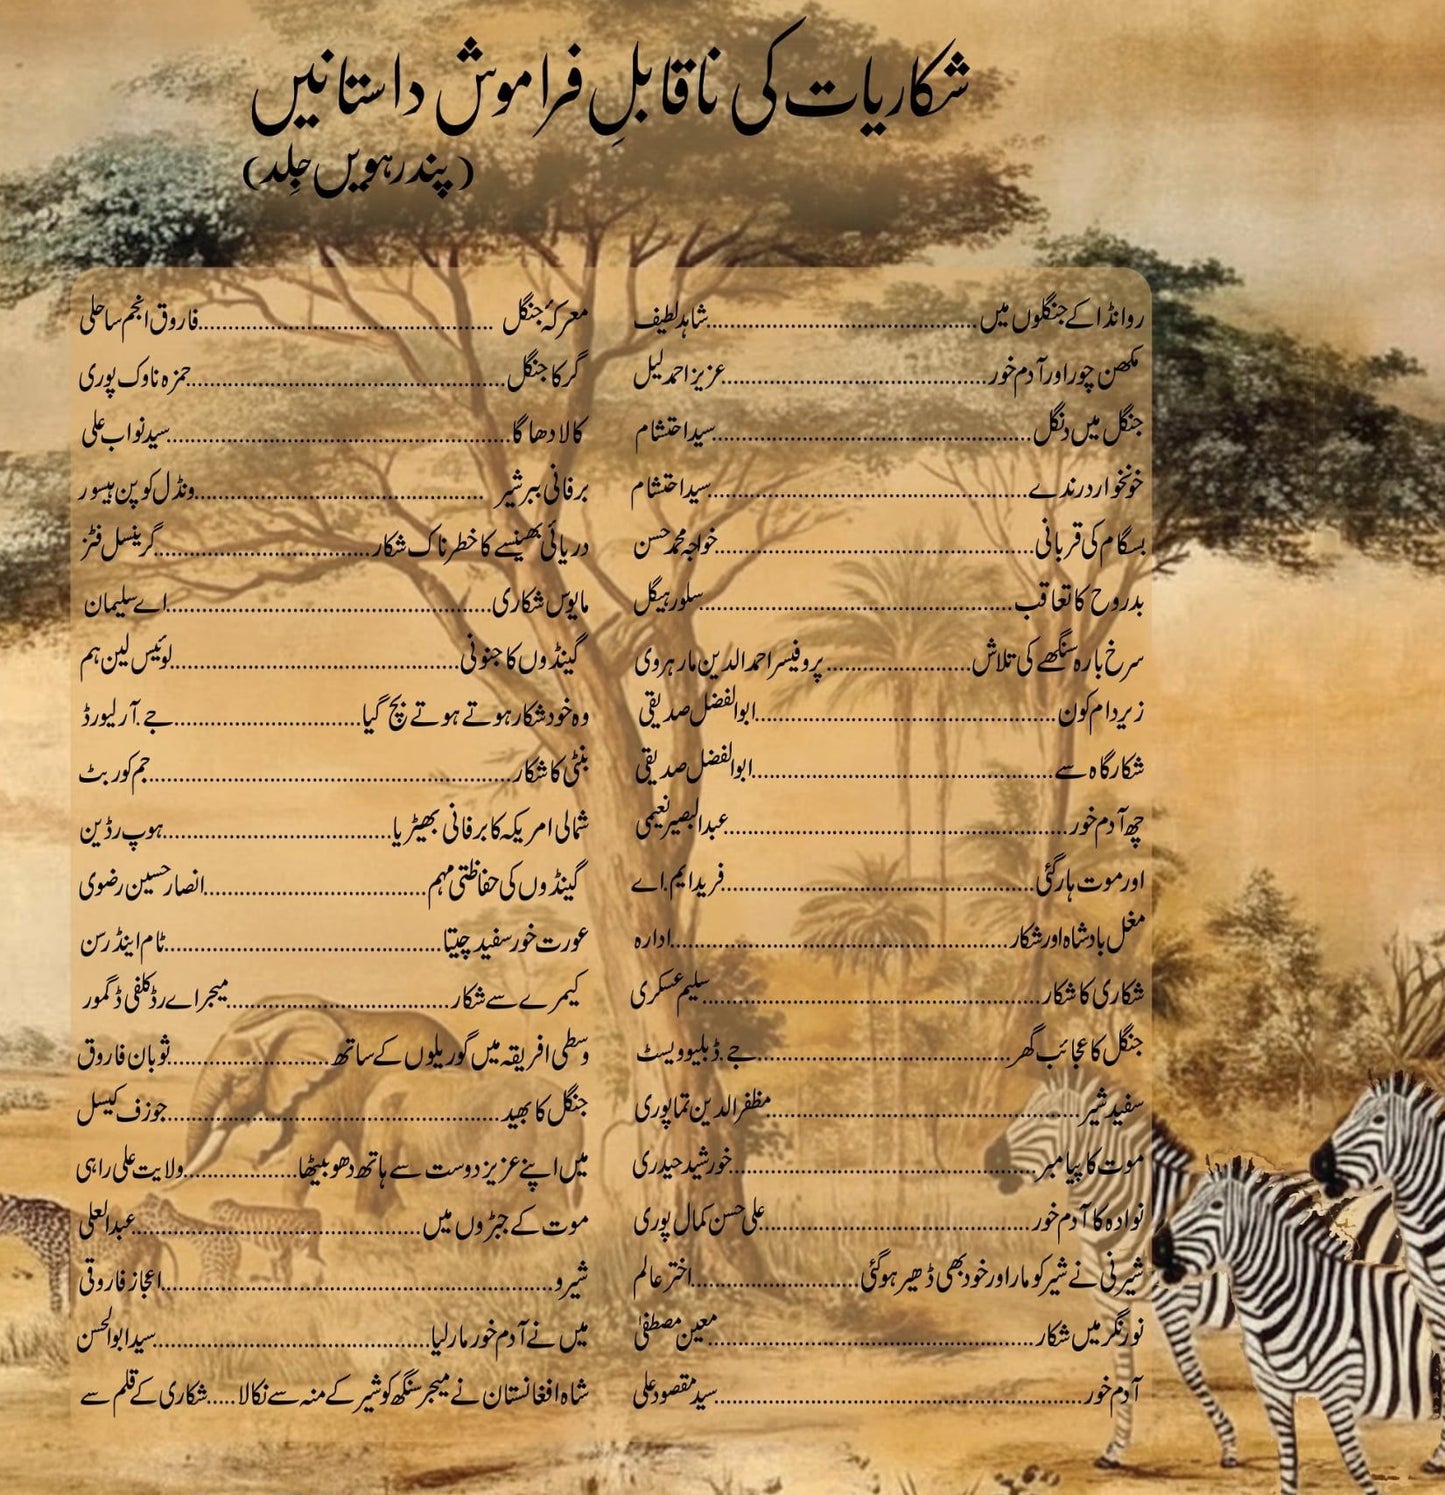 شکاریات کی ناقابلِ فراموش داستانیں
(پندرہویں جِلد)
روانڈا کے جنگلوں میں..............................شاہد لطیف
مکھن چور اور آدم خور..............................عزیز احمد لیل
جنگل میں دنگل..............................سید احتشام
خونخوار درندے..............................سید احتشام
بسگام کی قربانی..............................خواجہ محمد حسن
بدروح کا تعاقب..............................سلور ہیگل
سرخ بارہ سنگھے کی تلاش..............................پروفیسر احمد الدین مارہروی
زیر دام کون..............................ابوالفضل صدیقی
شکار گاہ سے..............................ابوالفضل صدیقی
چھ آدم خور..............................عبدالبصیر نعیمی
اور موت ہار گئی..............................فرید ایم.اے
مغل بادشاہ اور شکار..............................ادارہ
شکاری کا شکار..............................سلیم عسکری
جنگل کا عجائب گھر..............................جے.ڈبلیو ویسٹ
سفید شیر..............................مظفر الدین تماپوری
موت کا پیامبر..............................خورشید حیدری
نوادہ کا آدم خور..............................علی حسن کمال پوری
شیرنی نے شیر کو مارا ور خود بھی ڈھیر ہوگئی..............................اختر عالم
نورنگر میں شکار..............................معین مصطفیٰ
آدم خور..............................سید مقصود علی
معرکۂ جنگل..............................فاروق انجم ساحلی
گر کا جنگل..............................حمزہ ناوک پوری
کالا دھاگا..............................سید نواب علی
برفانی ببر شیر..............................ونڈل کوپن ہیسور
دریائی بھینسے کا خطرناک شکار..............................گرینسل فٹز
مایوس شکاری..............................اے سلیمان
گینڈوں کا جنونی..............................لوئیس لین ہم
وہ خود شکار ہوتے ہوتے بچ گیا..............................جے.آر لیورڈ
بنٹی کا شکار..............................جم کوربٹ
شمالی امریکہ کا برفانی بھیڑیا..............................ہوپ رڈین
گینڈوں کی حفاظتی مہم..............................انصار حسین رضوی
عورت خور سفید چیتا..............................ٹام اینڈرسن
کیمرے سے شکار..............................میجر اے رڈکلفی ڈگمور
وسطی افریقہ میں گوریلوں کے ساتھ..............................ثوبان فاروق
جنگل کا بھید..............................جوزف کیسل
میں اپنے عزیز دوست سے ہاتھ دھو بیٹھا..............................ولایت علی راہی
موت کے جبڑوں میں..............................عبدالعلی
شیرو..............................اعجاز فاروقی
میں نے آدم خور مار لیا..............................سید ابوالحسن
شاہ افغانستان نے میجر سنگھ کو شیر کے منہ سے نکالا.....شکاری کے قلم سے